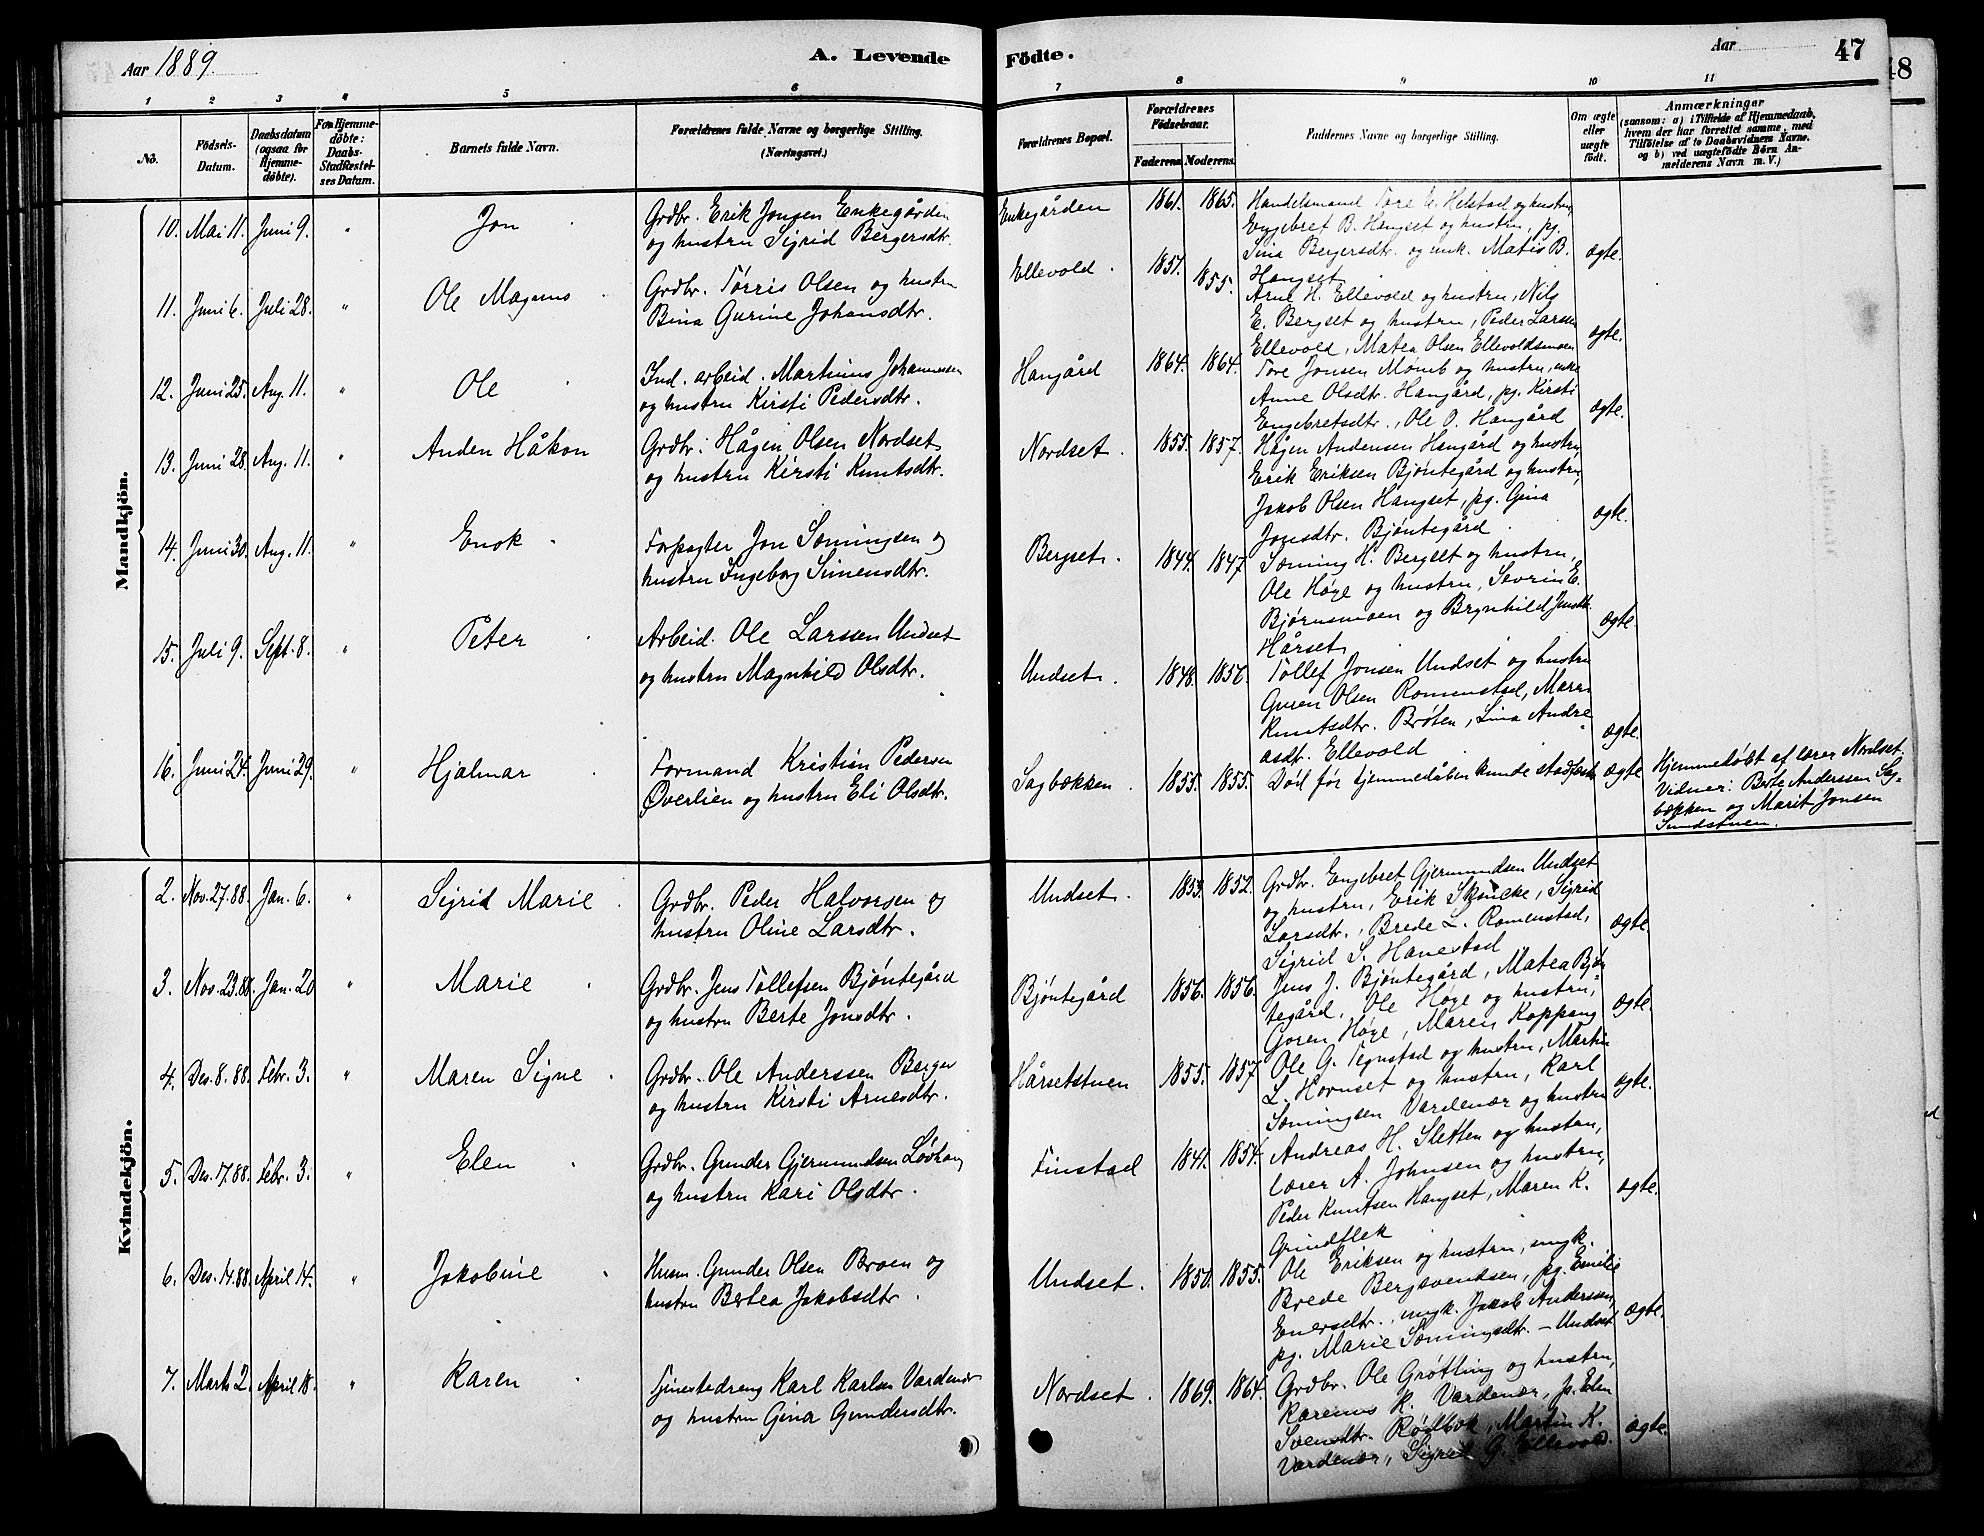 Aar 1889.
A. Levende
1 2 3 4 5 6
No.
Födsels-
Datum.
Daabsdatum
(ogsaa for
Hjemme-
døbte).
For Hjemme-
döbte:
Daabs-
Stadfæstel-
ses Datum.
Barnets fulde Navn.
Forældrenes fulde Navne og borgerlige Stilling.
(Næringsvei.)
Mandkjön.
10. Mai 11. Juni 9. " Jon Grdbr. Erik Jonsen Enkegården
og hustru Sigrid Bergersdtr.
11. Juni 6. Juli 28. " Ole Magnus Grdbr. Törris Olsen og hustru
Bina Gurine Johansdtr.
12. Juni 25. Aug. 11. " Ole Ind. arbeid. Martinus Johannessen
og hustru Kirsti Pedersdtr.
13. Juni 28. Aug. 11. " Anden Håkon Grdbr. Hågen Olsen Nordset
og hustru Kirsti Knutsdtr.
14. Juni 30. Aug. 11. " Enok Forpagter Jon Sæmingsen og
hustru Ingeborg Simensdtr.
15. Juli 9. Sept. 8. " Peter Arbeid. Ole Larssen Undset
og hustru Magnhild Olsdtr.
16. Juni 24. Juni 29. " Hjalmar Formand Kristian Pedersen
Øverlien og hustru Eli Olsdtr.
Kvindekjön.
2. Nov. 27. 88. Jan. 6. " Sigrid Marie Grdbr. Peder Halvorsen og
hustru Oline Larsdtr.
3. Nov. 23. 88. Jan. 20 " Marie Grdbr. Jens Tollefsen Bjöntegård
og hustru Berte Jonsdtr.
4. Des. 8. 88. Febr. 3. " Maren Signe Grdbr. Ole Anderssen Berger
og hustru Kirsti Arnesdtr.
5. Des. 17. 88. Febr. 3. " Elen Grdbr. Gunder Gjermundsen Løvhaug
og hustru Kari Olsdtr.
6. Des. 14. 88. April 14. " Jakobine Husm. Gunder Olsen Broen og
hustru Bertea Jakobsdtr.
7. Marts 2. April 18. " Karen Tjenestedreng Karl Karlsen Vardenær
og hustru Gina Gundersdtr.
Födte.
Aar
47
48
7 8 9 10 11
Forældrenes Bopæl.
Forældrenes
Födselsaar.
Faderens Moderens
Faddernes Navne og borgerlige Stilling.
Om ægte
eller
uægte
födt.
Anmærkninger
(saasom: a) i Tilfælde af Hjemmedaab,
hvem der har forrettet samme, med
Tilföielse af to Daabsvidners Navne,
og b) ved uægtefödte Börn An-
melderens Navn m. V.)
Enkegården 1861. 1865. Handelsmand Tore E. Helstad og hustru,
Engebret B. Hangset og hustru, pg.
Sina Bergersdtr. og unk. Matis B.
Hangset ægte.
Ellevold. 1857. 1855. Arne H. Ellevold og hustru, Nils
E. Bergset og hustru, Peder Larssen
Ellevold, Matea Olsen Ellevoldsmoen ægte.
Hangård 1864. 1864. Tore Jonsen Momb og hustru, enke
Anne Olsdtr. Hangård, pg. Kirsti
Engebretsdtr., Ole O. Hangård ægte.
Nordset. 1855. 1857. Hågen Andersen Hangård og hustru
Erik Eriksen Bjöntegård og hustru,
Jakob Olsen Hangset, pg. Gina
Jonsdtr. Bjöntegård. ægte.
Bergset. 1844. 1847 Sæming H. Bergset og hustru,
Ole Høye og hustru, Sevrin E.
Bjørnsmoen og Brynhild Jensdtr.
Hårset ægte
Undset. 1848. 1856. Tollef Jonsen Undset og hustru
Guren Olsen Romenstad, Maren
Knutsdtr. Bröten, Lina Andre
asdtr. Ellevold ægte.
Sagbækken. 1855. 1855. Död för hjemmedåben kunde stadfæstes ægte Hjemmedöbt af lærer Nordset.
Vidner: Berte Anderssen Sag-
bækken og Marit Jonsen
Sundstuen.
Undset. 1853. 1852. Grdbr. Engebret Gjermundsen Undset
og hustru, Erik Skencke, Sigrid
Larsdtr., Brede L. Romenstad,
Sigrid S. Hanestad ægte.
Bjöntegård 1856. 1856. Jens J. Bjöntegård, Matea Bjön
tegård, Ole Høye og hustru,
Goren Høye, Maren Koppang ægte.
Hårsetstuen 1855. 1857 Ole G. Tegnstad og hustru, Martin
L. Hornset og hustru, Karl
Sæmingsen Vardenær og hustru ægte.
Finstad 1841. 1854. Andreas H. Sletten og hustru,
lærer A. Johnsen og hustru,
Peder Knutsen Hangset, Maren K.
Grindflek ægte.
Undset. 1850. 1855. Ole Eriksen og hustru, ungk.
Brede Bergsvendsen, pg. Emilie
Enersdtr., ungk. Jakob Andersen,
pg. Marie Sæmingsdtr. - Undset ægte.
Nordset. 1869. 1864. Grdbr. Ole Gröttling og hustru,
Karenus K. Vardenær, p. Elen
Svensdtr. Rödbæk, Martin K.
Vardenær, Sigrid G. Ellevold. ægte.